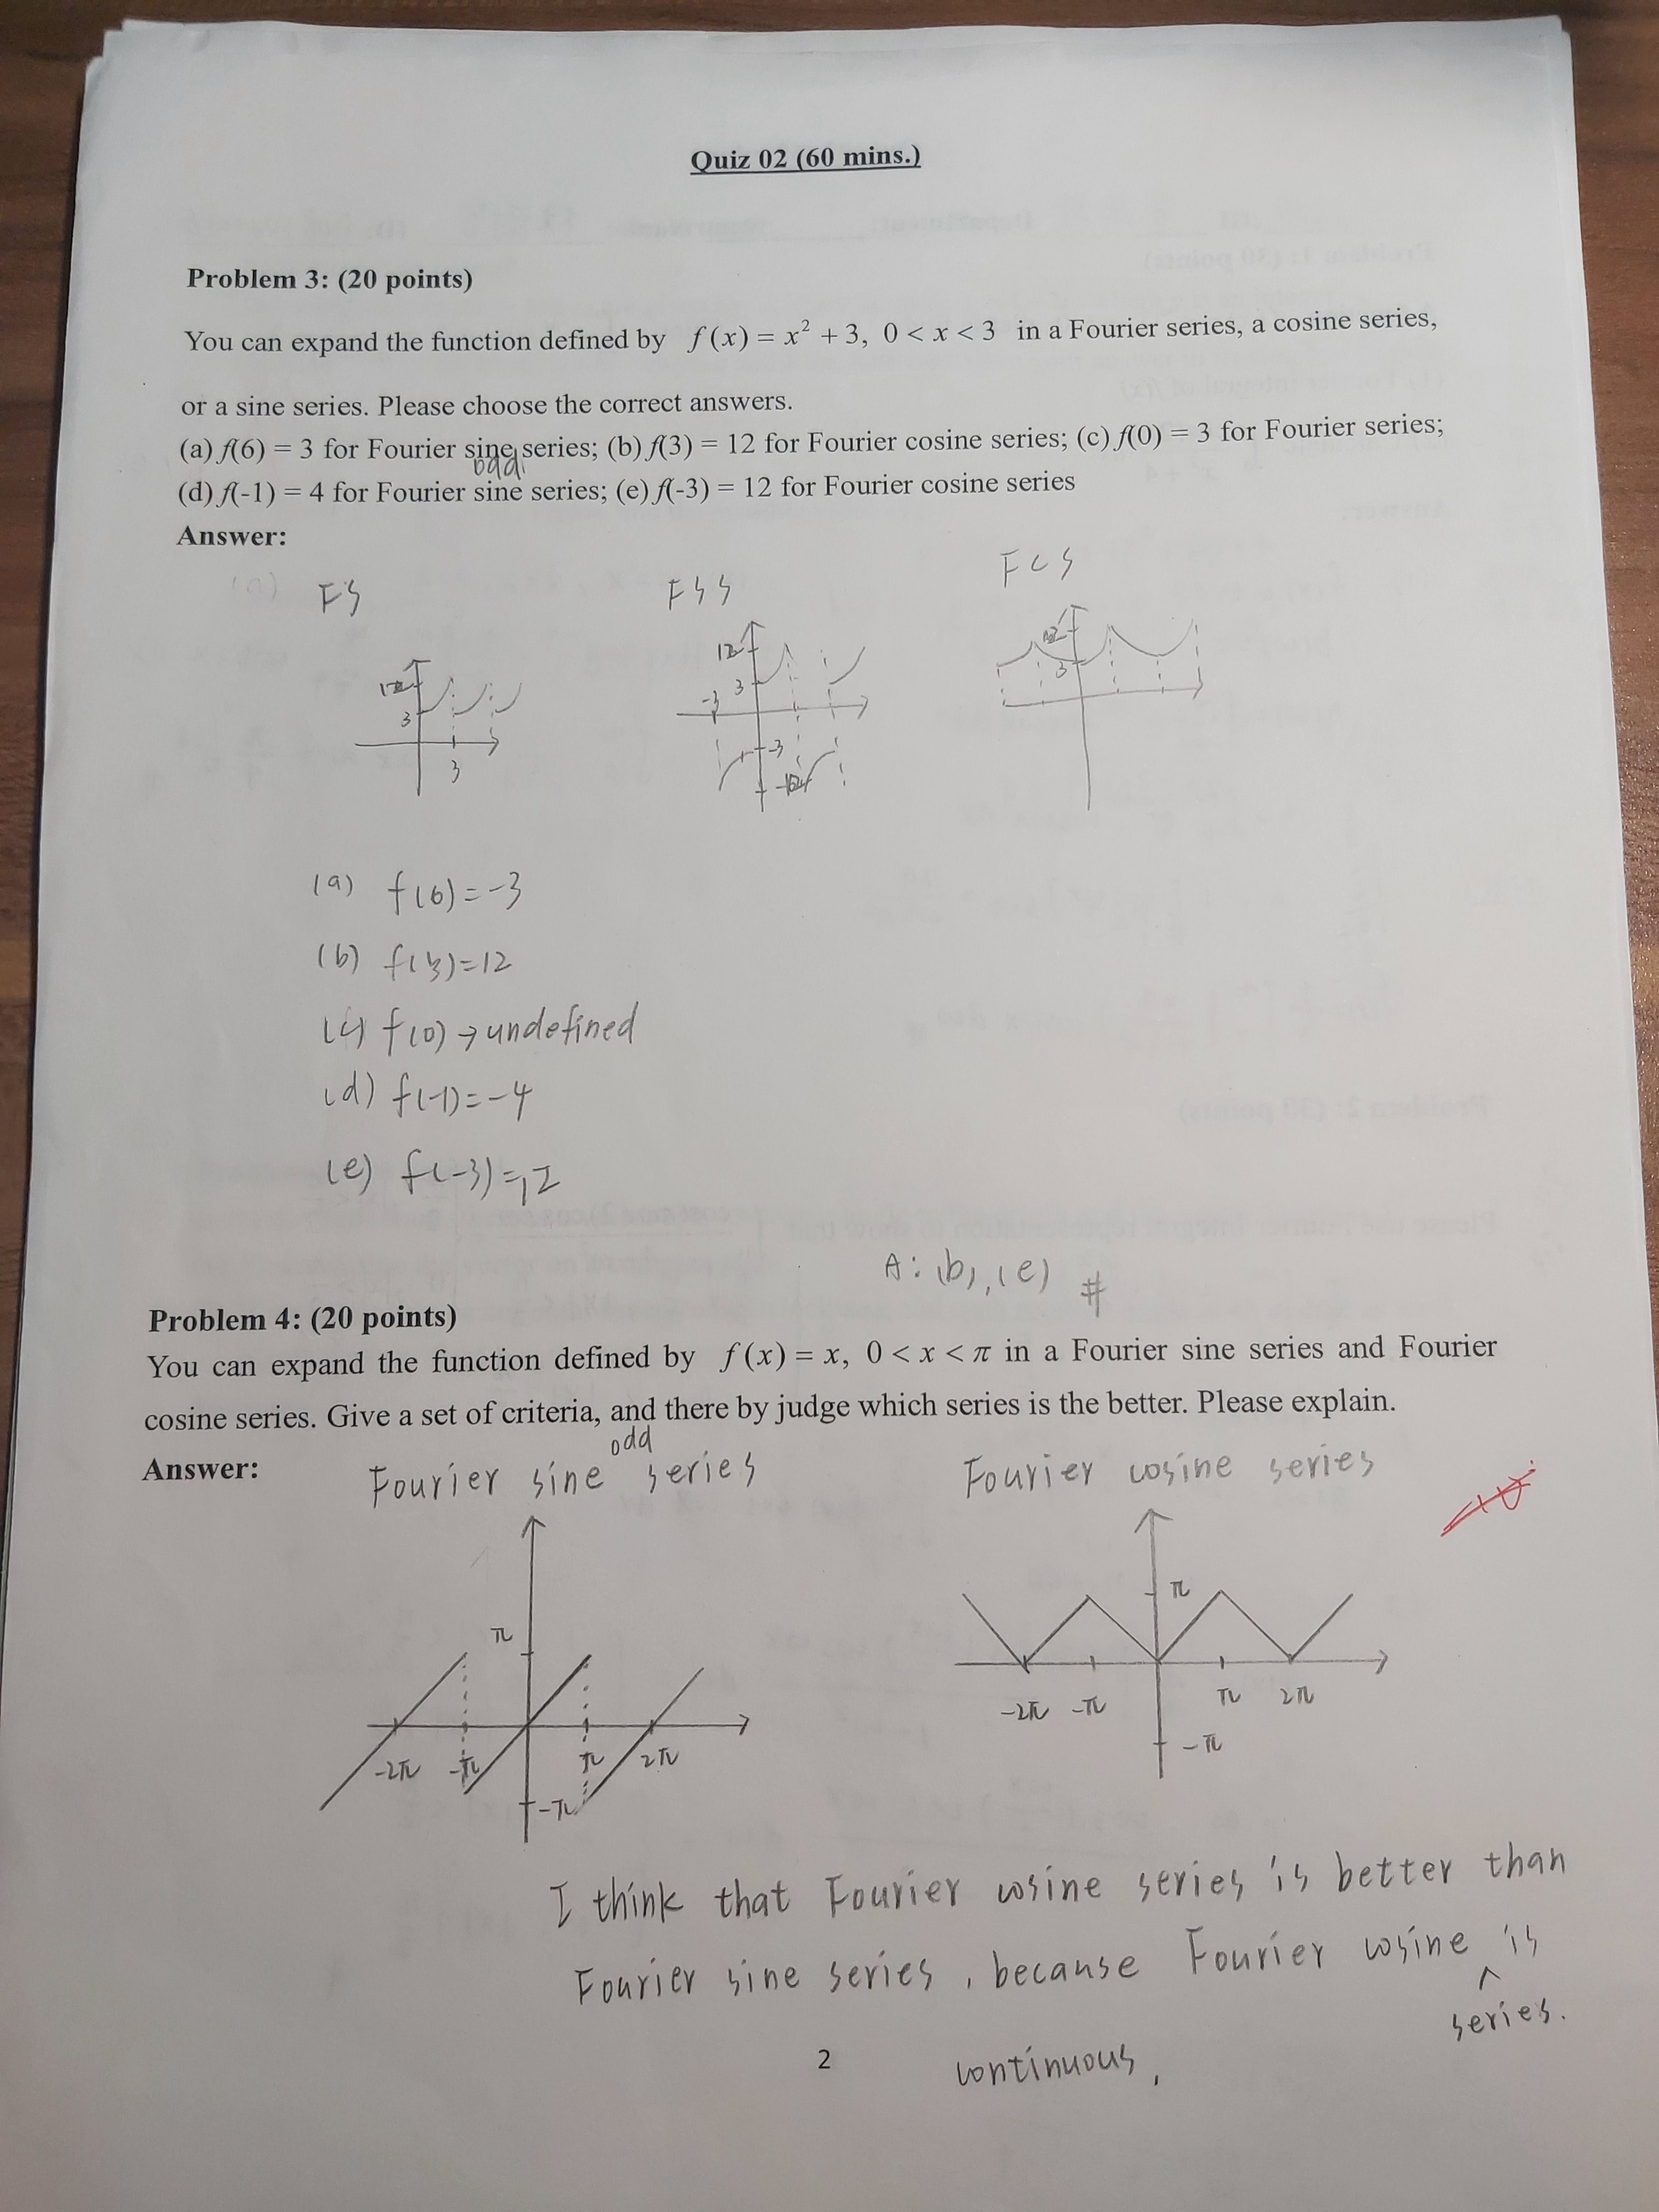 Quiz 02 (60 mins.)
Problem 3: (20 points)
You can expand the function defined by f(x) = x² + 3, 0 < x < 3 in a Fourier series, a cosine series,
or a sine series. Please choose the correct answers.
(a) f(6) = 3 for Fourier sine series; (b) f(3) = 12 for Fourier cosine series; (c) f(0) = 3 for Fourier series;
odd
(d) f(-1) = 4 for Fourier sine series; (e) f(-3) = 12 for Fourier cosine series
Answer:
FS FSS FCS
12 3 3
12 3 -3 -3 -12
12 3
(a) f(6)=-3
(b) f(3)=12
(c) f(0)→undefined
(d) f(-1)=-4
(e) f(-3)=12
A: (b), (e) #
Problem 4: (20 points)
You can expand the function defined by f(x) = x, 0 < x < π in a Fourier sine series and Fourier
cosine series. Give a set of criteria, and there by judge which series is the better. Please explain.
odd
Answer: Fourier sine series Fourier cosine series
π
-2π -π π 2π
-π
π
-2π -π π 2π
-π
I think that Fourier cosine series is better than
Fourier sine series, because Fourier cosine is
^
series.
continuous,
2